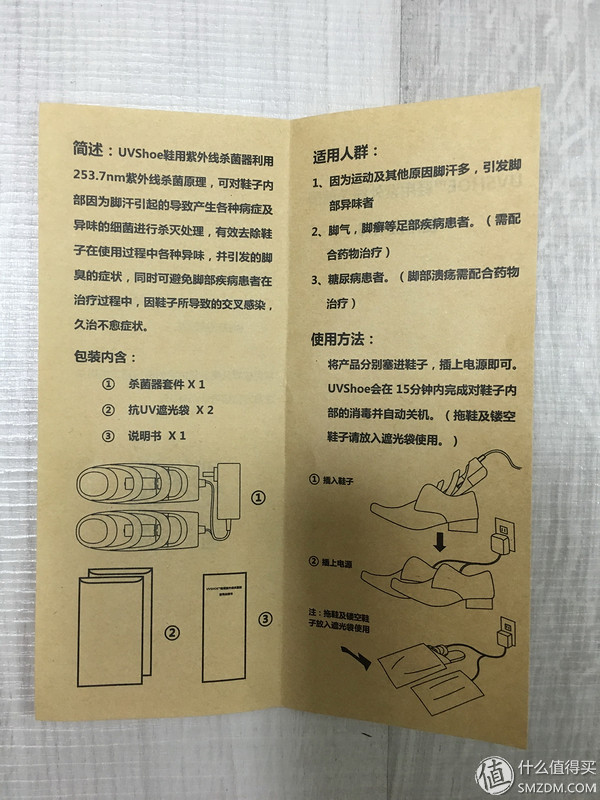 简述：UVShoe鞋用紫外线杀菌器利用
253.7nm紫外线杀菌原理，可对鞋子内
部因为脚汗引起的导致产生各种病症及
异味的细菌进行杀灭处理，有效去除鞋
子在使用过程中各种异味，并引发的脚
臭的症状，同时可避免脚部疾病患者在
治疗过程中，因鞋子所导致的交叉感染，
久治不愈症状。
包装内含：
① 杀菌器套件 X 1
② 抗UV遮光袋 X 2
③ 说明书 X 1
①
②
③
适用人群：
1、因为运动及其他原因脚汗多，引发脚
部异味者
2、脚气，脚癣等足部疾病患者。（需配
合药物治疗）
3、糖尿病患者。（脚部溃疡需配合药物
治疗）
使用方法：
将产品分别塞进鞋子，插上电源即可。
UVShoe会在 15分钟内完成对鞋子内
部的消毒并自动关机。（拖鞋及镂空
鞋子请放入遮光袋使用。）
① 插入鞋子
② 插上电源
注：拖鞋及镂空鞋
子放入遮光袋使用
值 什么值得买
SMZDM.COM